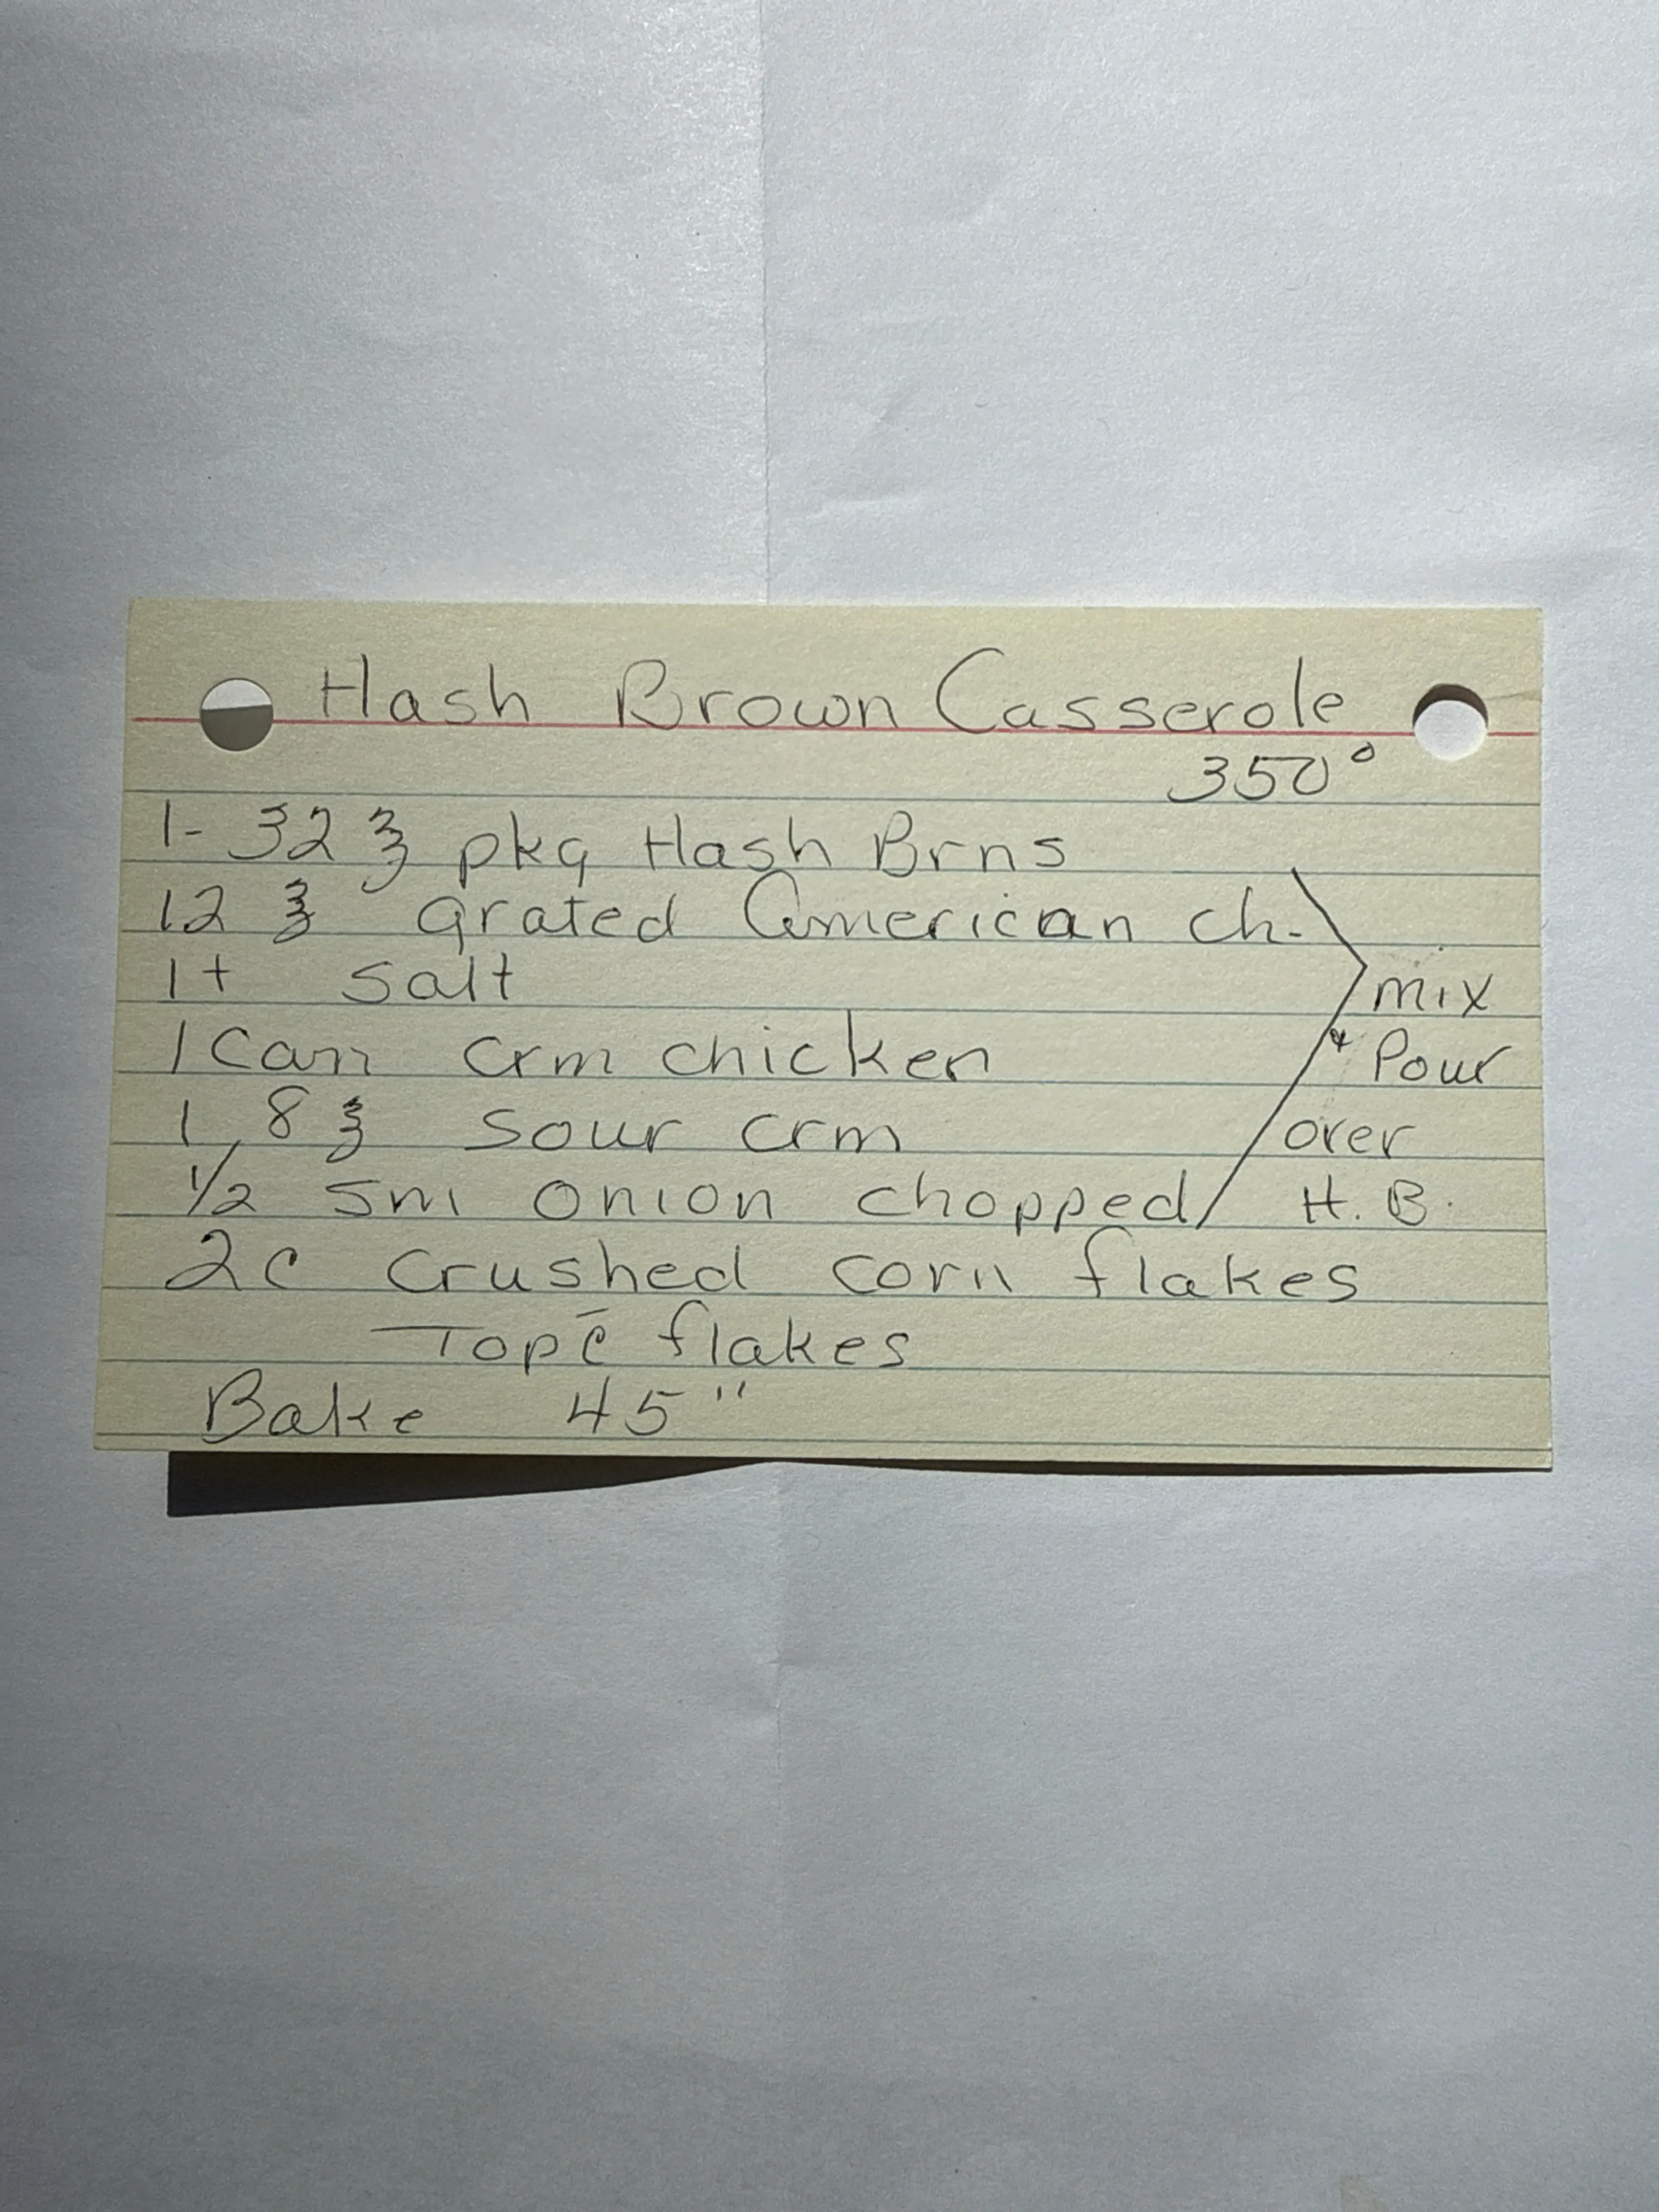 Hash Brown Casserole
350°
1- 32 ℥ pkg Hash Brns
12 ℥ grated American ch.
1 t salt
mix
1 Can crm chicken
& Pour
1 8 ℥ sour crm
over
1/2 sm onion chopped
H. B.
2c crushed corn flakes
Top c̄ flakes
Bake 45"